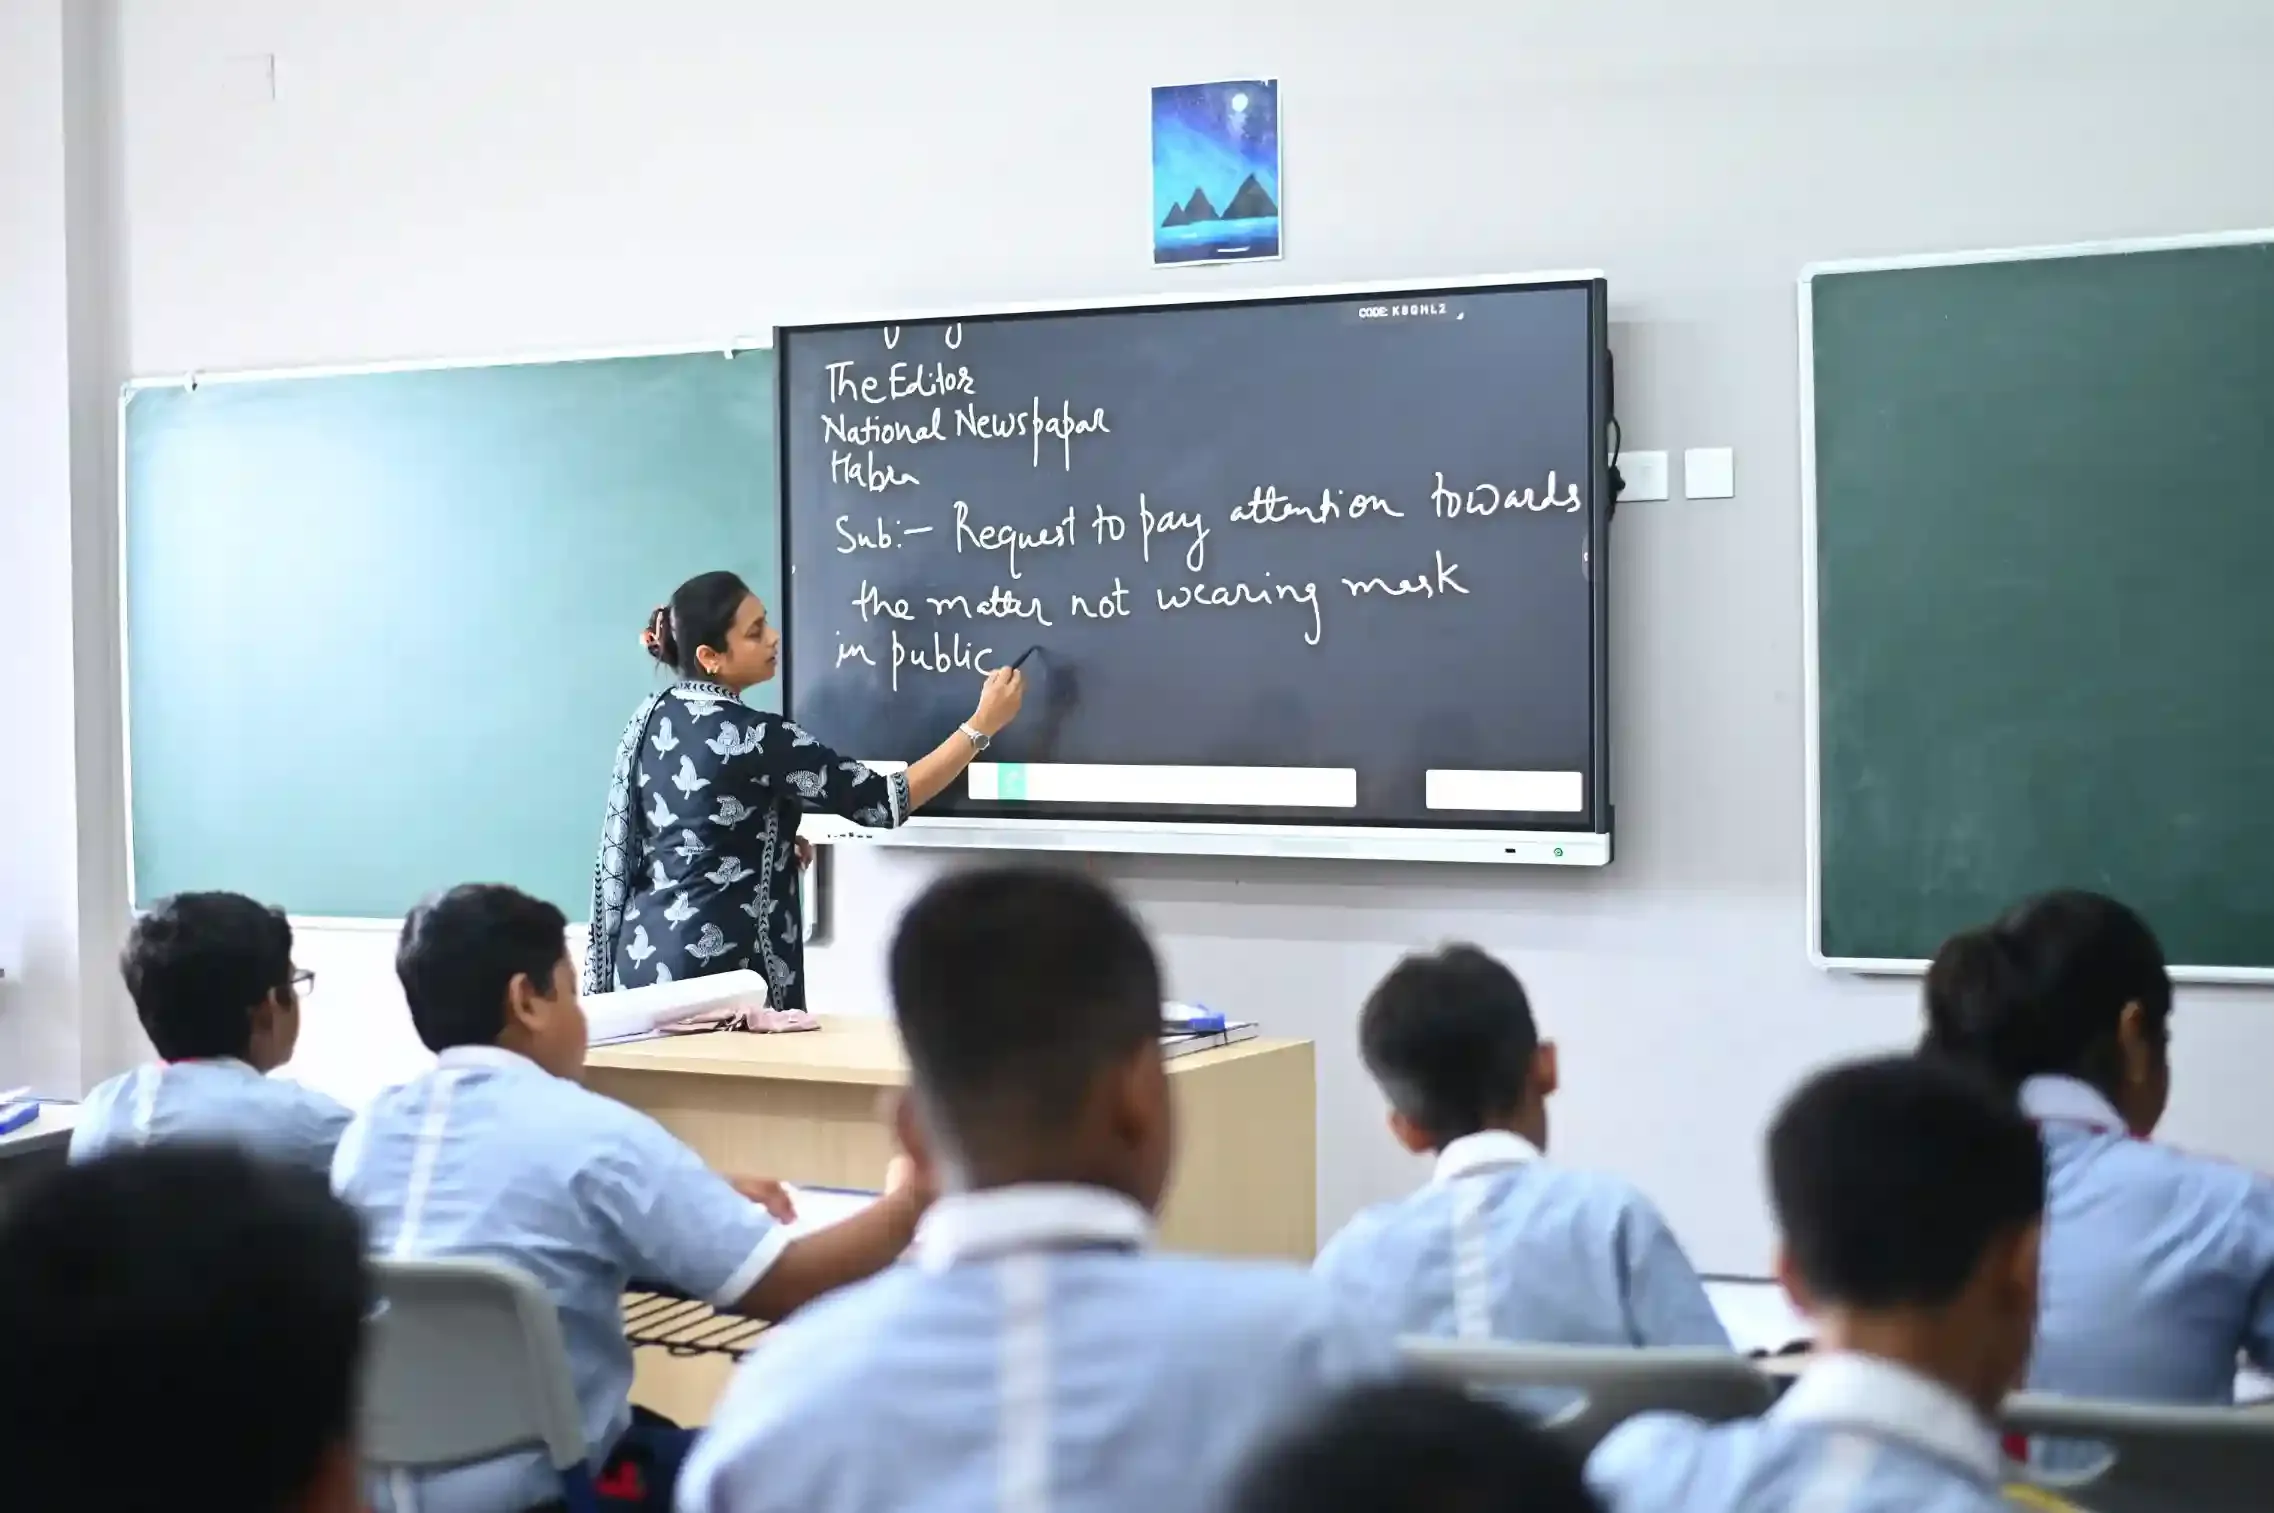 CODE: K8GHL2
The Editor
National Newspapar
Habra
Sub:- Request to pay attention towards
the matter not wearing mask
in public